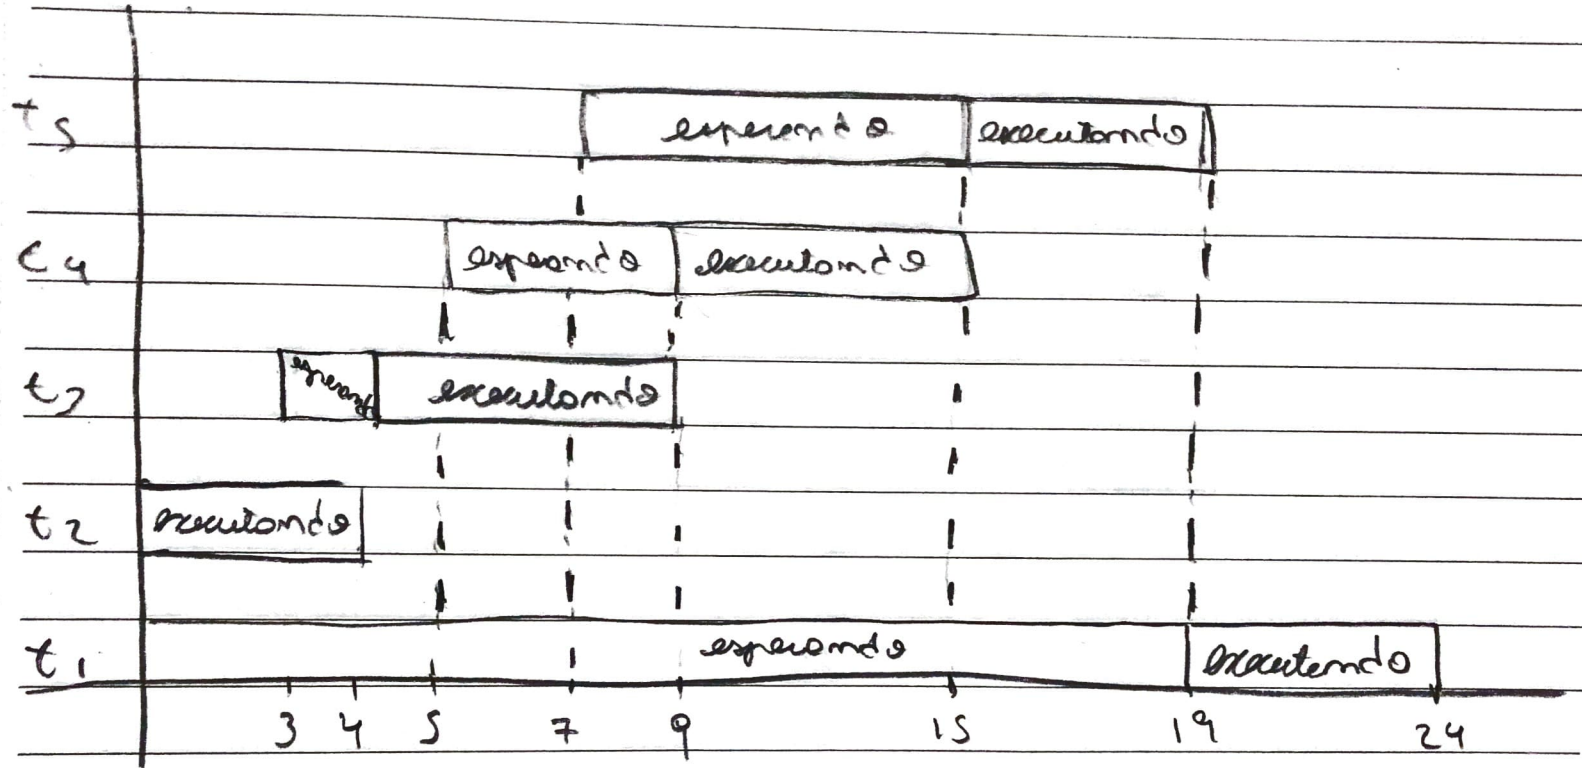 t5 esperando executando
t4 esperando executando
t3 esperando executando
t2 executando
t1 esperando executando
3 4 5 7 9 15 19 24